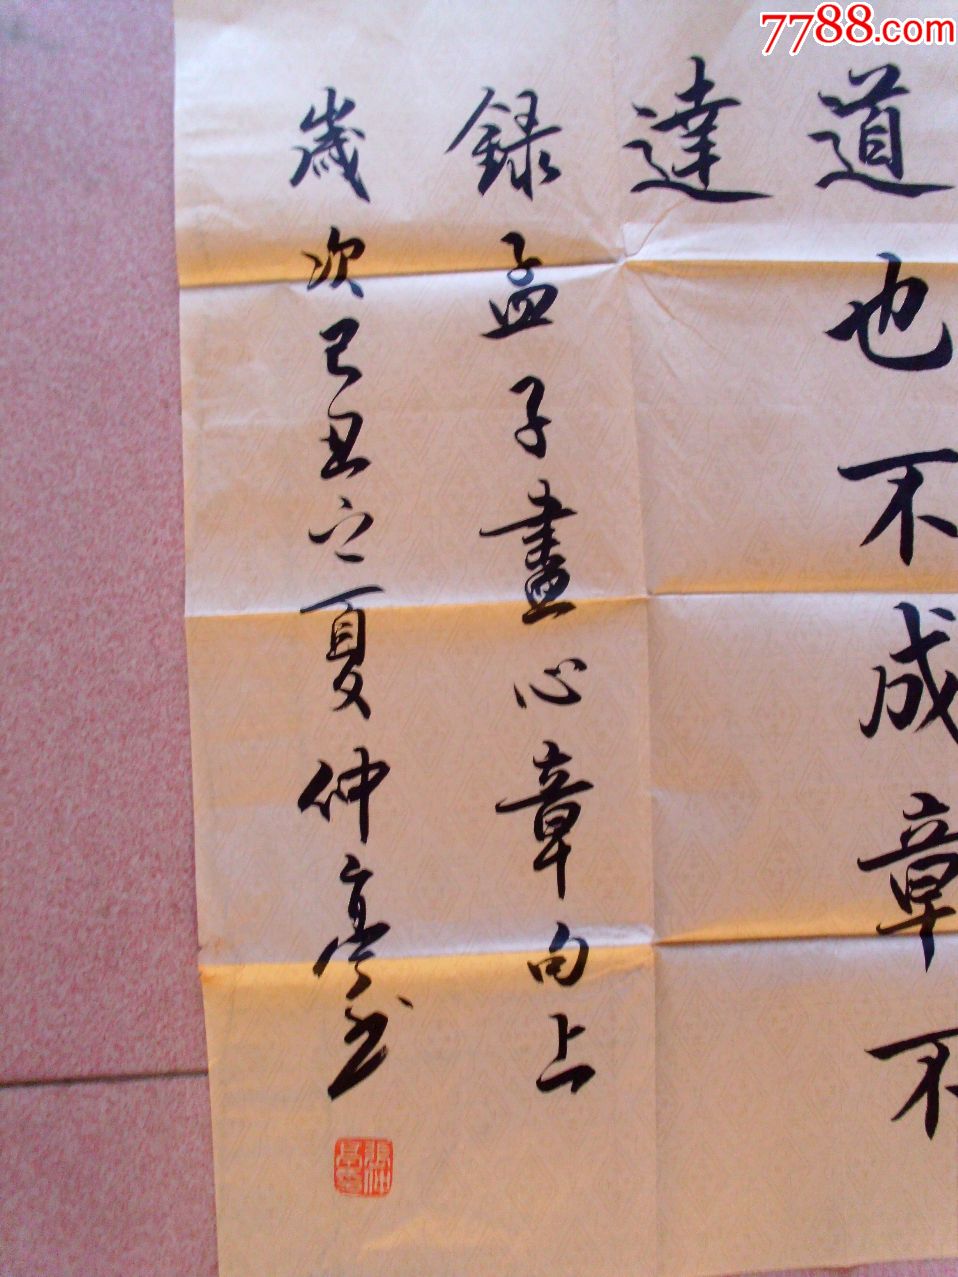 7788.com
道也不成章不
達
録孟子盡心章句上
歲次己丑之夏仲亭书